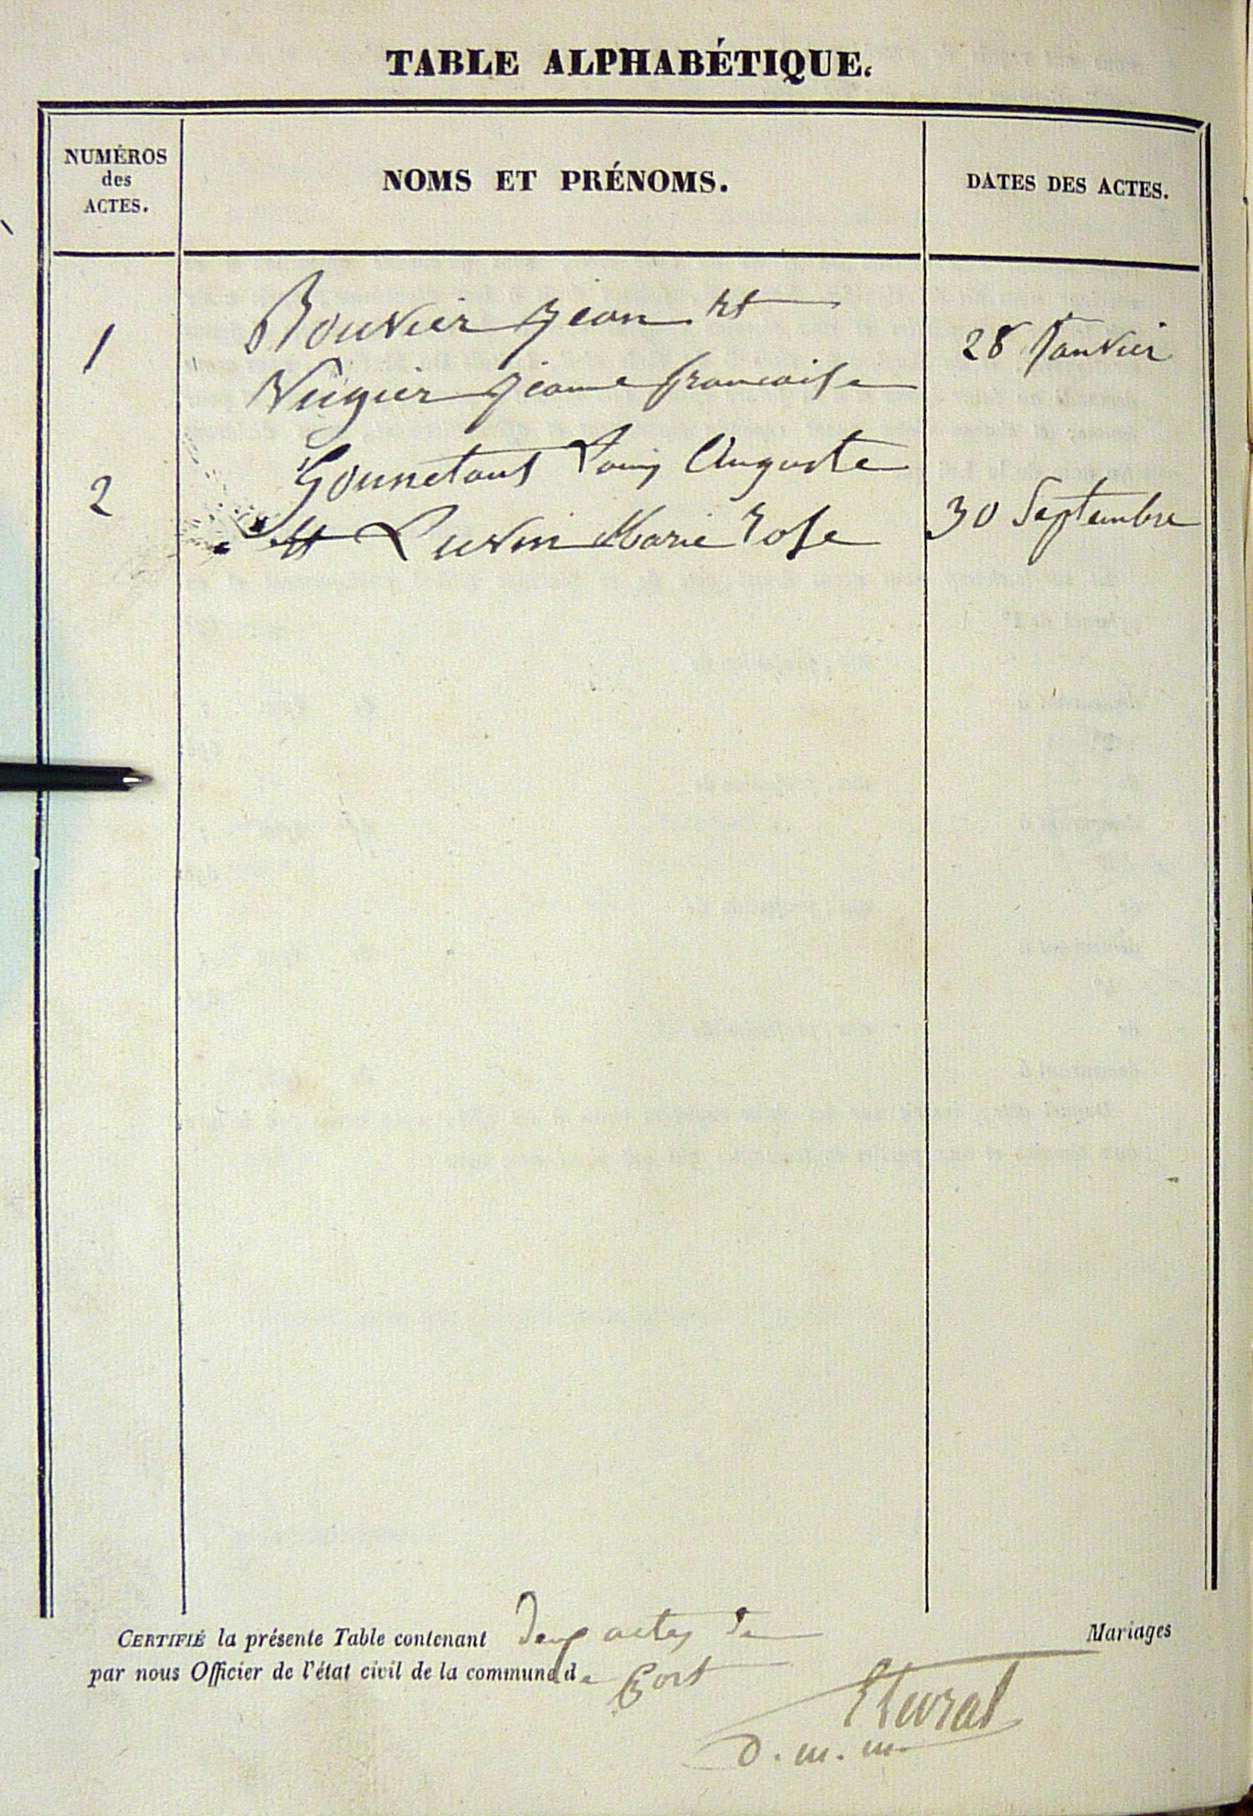 TABLE ALPHABÉTIQUE.
NUMÉROS
des
ACTES.
NOMS ET PRÉNOMS.
DATES DES ACTES.
1
Bouvier Jean et
Vugier Jeanne francoise
28 Janvier
2
Gounetant Louis Auguste
et Luvin Marie Rose
30 Septembre
CERTIFIÉ la présente Table contenant deux actes de Mariages
par nous Officier de l'état civil de la commune de